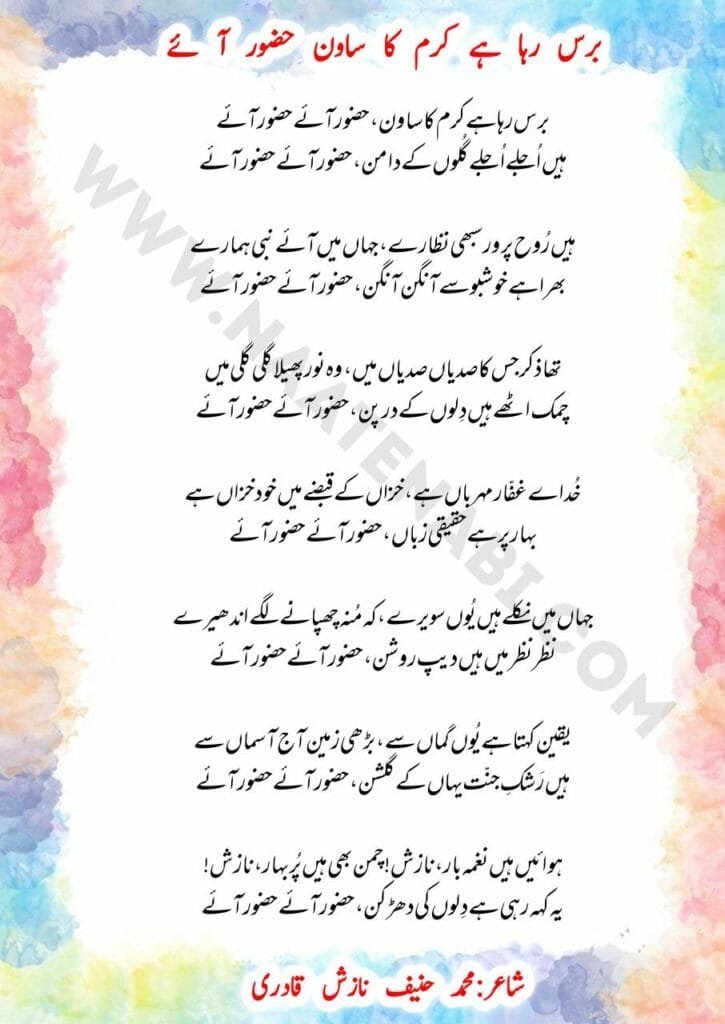 برس رہا ہے کرم کا ساون حضور آئے
برس رہا ہے کرم کا ساون، حضور آئے حضور آئے
ہیں اُجلے اُجلے گُلوں کے دامن، حضور آئے حضور آئے
ہیں رُوح پرور سبھی نظارے، جہاں میں آئے نبی ہمارے
بھرا ہے خوشبو سے آنگن آنگن، حضور آئے حضور آئے
تھا ذکر جس کا صدیاں صدیاں میں، وہ نور پھیلا گلی گلی میں
چمک اٹھے ہیں دِلوں کے درپن، حضور آئے حضور آئے
خُداے غفّار مہرباں ہے، خزاں کے قبضے میں خود خزاں ہے
بہار پر ہے حقیقی زباں، حضور آئے حضور آئے
جہاں میں نکلے ہیں یُوں سویرے، کہ مُنہ چھپانے لگے اندھیرے
نظر نظر میں ہیں دیپ روشن، حضور آئے حضور آئے
یقین کہتا ہے یُوں گماں سے، بڑھی زمین آج آسماں سے
ہیں رَشکِ جنّت یہاں کے گلشن، حضور آئے حضور آئے
ہوائیں ہیں نغمہ بار، نازش! چمن بھی ہیں پُر بہار، نازش!
یہ کہہ رہی ہے دِلوں کی دھڑکن، حضور آئے حضور آئے
شاعر: محمد حنیف نازش قادری
WWW.NAATENABI.COM